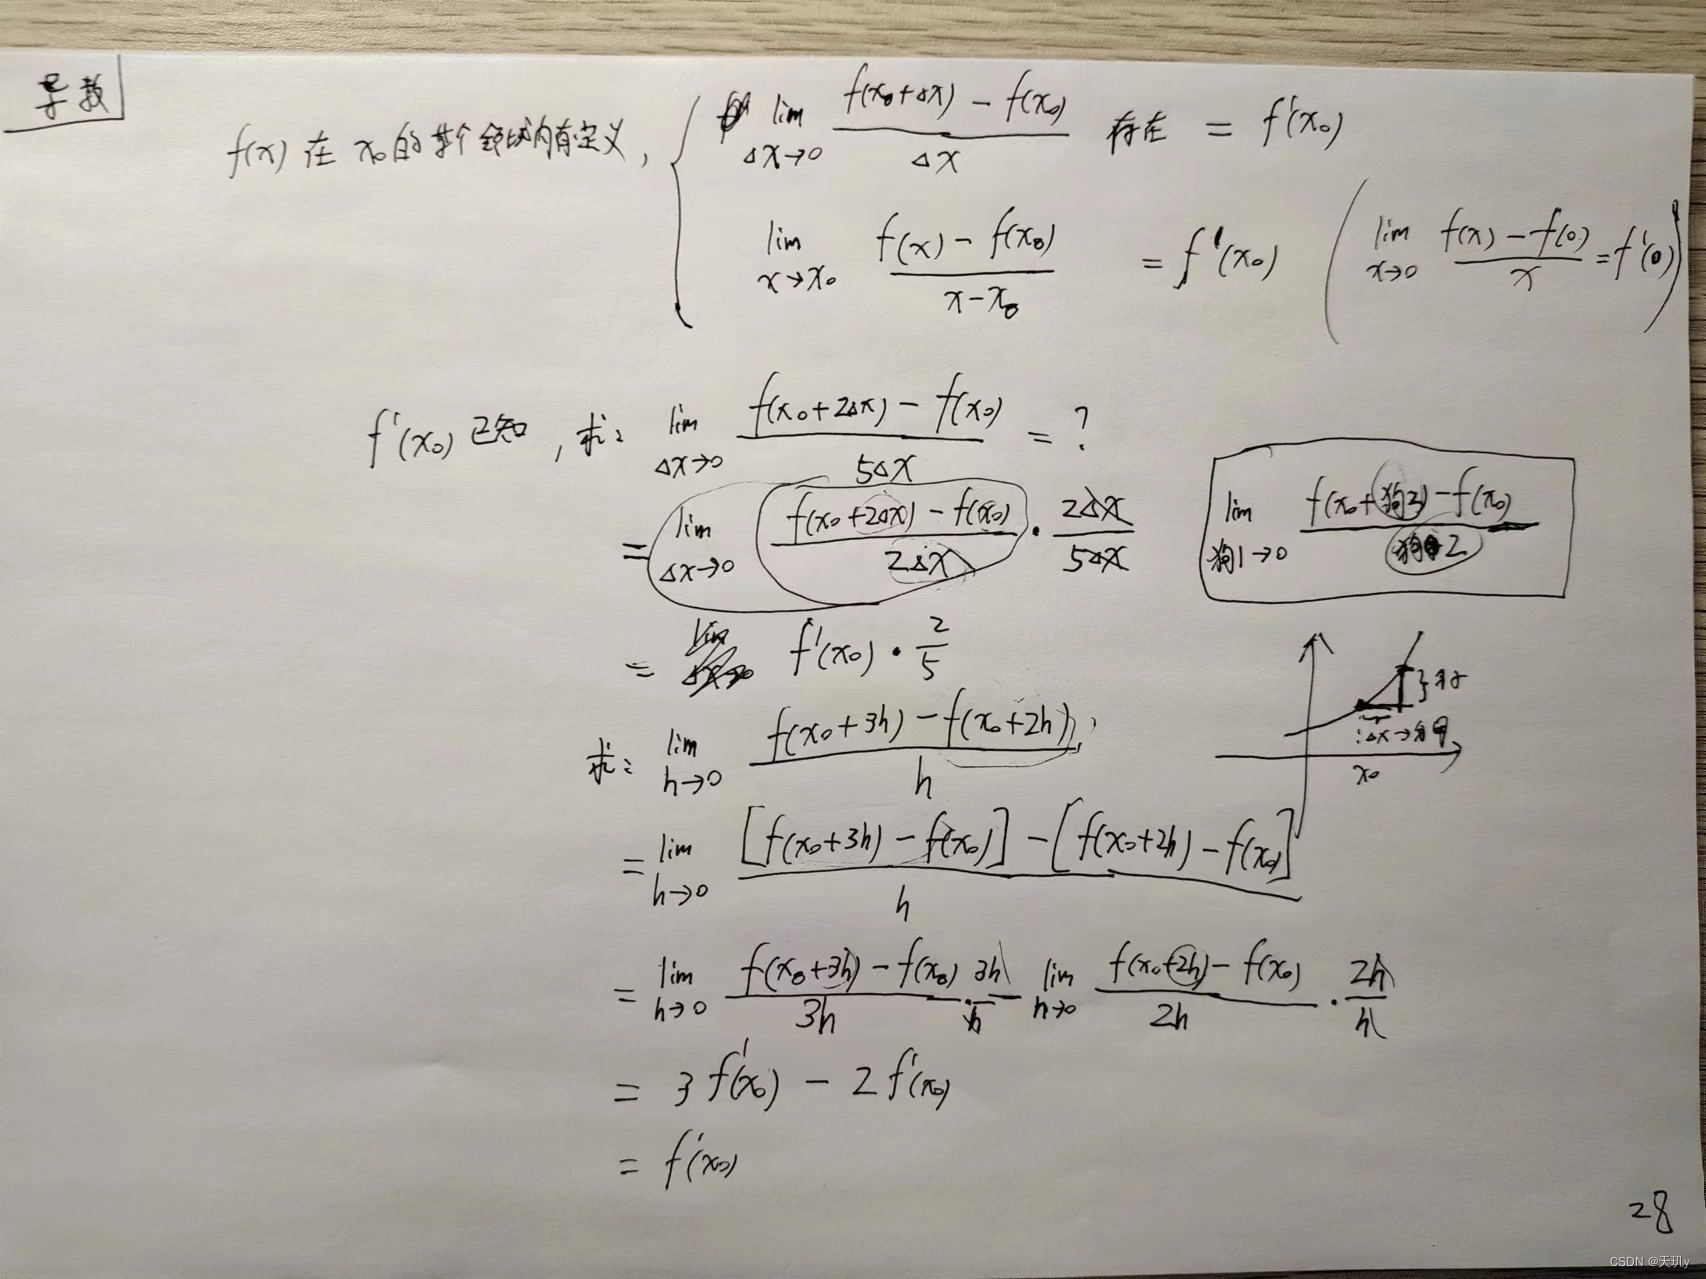 导数
f(x) 在 x₀ 的某个领域内有定义, { lim Δx→0 (f(x₀+Δx) - f(x₀)) / Δx 存在 = f'(x₀)
lim x→x₀ (f(x) - f(x₀)) / (x - x₀) = f'(x₀) ( lim x→0 (f(x) - f(0)) / x = f'(0) )
f'(x₀) 已知, 求: lim Δx→0 (f(x₀+2Δx) - f(x₀)) / 5Δx = ?
= lim Δx→0 (f(x₀+2Δx) - f(x₀)) / 2Δx · 2Δx / 5Δx
lim 狗1→0 (f(x₀+狗2) - f(x₀)) / 狗2
= f'(x₀) · 2/5
Δx→
x₀
求: lim h→0 (f(x₀+3h) - f(x₀+2h)) / h
= lim h→0 ([f(x₀+3h) - f(x₀)] - [f(x₀+2h) - f(x₀)]) / h
= lim h→0 (f(x₀+3h) - f(x₀)) / 3h · 3h / h - lim h→0 (f(x₀+2h) - f(x₀)) / 2h · 2h / h
= 3f'(x₀) - 2f'(x₀)
= f'(x₀)
28
CSDN @天玑y